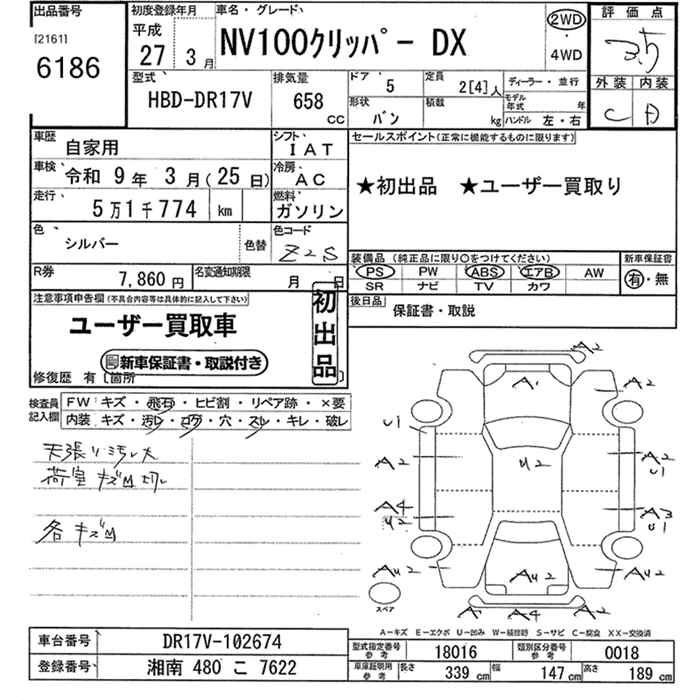 出品番号
[2161]
6186
初度登録年月
平成
27 3月
車名・グレード
NV100クリッパー DX
2WD
・
4WD
評価点
3.5
外装 内装
C D
型式
HBD-DR17V
排気量
658
cc
ドア 5
定員 2[4]人
ディーラー・並行
形状 バン
積載 kg
モデル年式 年
ハンドル 左・右
車歴 自家用
シフト IAT
車検 令和 9年 3月(25日)
冷房 AC
走行 5万1千774 km
燃料 ガソリン
色 シルバー
色替
色コード Z2S
R券 7,860円
名変通知期限 月 日
セールスポイント(正常に機能するものに限ります)
★初出品 ★ユーザー買取り
装備品(純正品に限り〇をつけてください)
PS PW ABS エアB AW
SR ナビ TV カワ
新車保証書
有・無
後日品
保証書・取説
注意事項申告欄(不具合内容等は具体的に記入して下さい)
ユーザー買取車
新車保証書・取説付き
初出品
修復歴 有[箇所
検査員記入欄
FW キズ・飛石・ヒビ割・リペア跡・×要
内装 キズ・汚レ・コゲ・穴・スレ・キレ・破レ
天張リ汚レ大
荷室キズM切レ
各キズM
A2
A1
U1
A2
A2
A2
U1
U2
A4
U2
A3
U1
AU2
AU2
AU2
A4
A2
スペア
A-キズ E-エクボ U-凹み W-補修跡 S-サビ C-腐食 XX-交換済
車台番号 DR17V-102674
登録番号 湘南 480 こ 7622
型式指定番号 参考 18016
類別区分番号 参考 0018
車庫証明用 参考
長さ 339 cm
幅 147 cm
高さ 189 cm